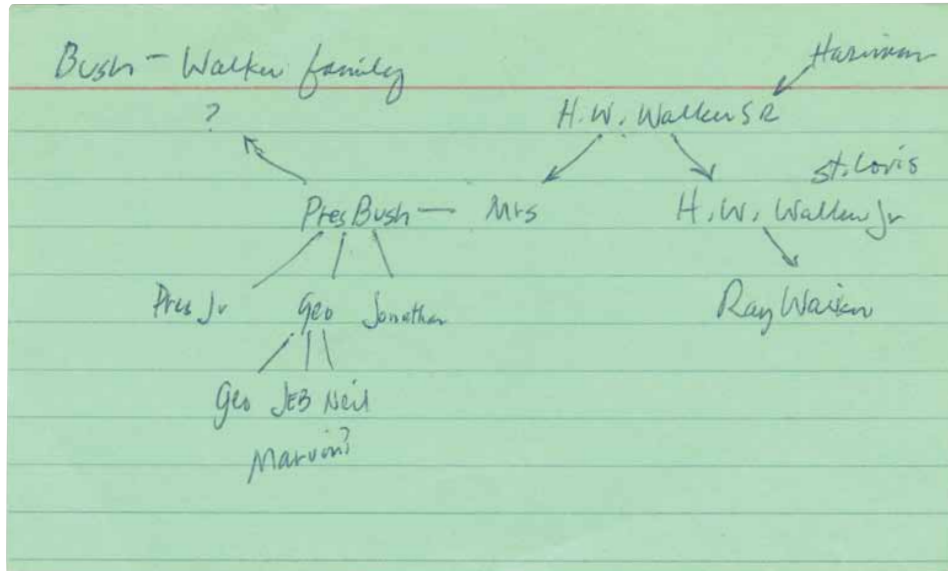 Bush - Walker family
Harriman
?
H. W. Walker SR
St. Louis
Pres Bush — Mrs
H. W. Walker Jr
Pres Jr Geo Jonathan
Ray Walker
Geo JEB Neil
Marvin?